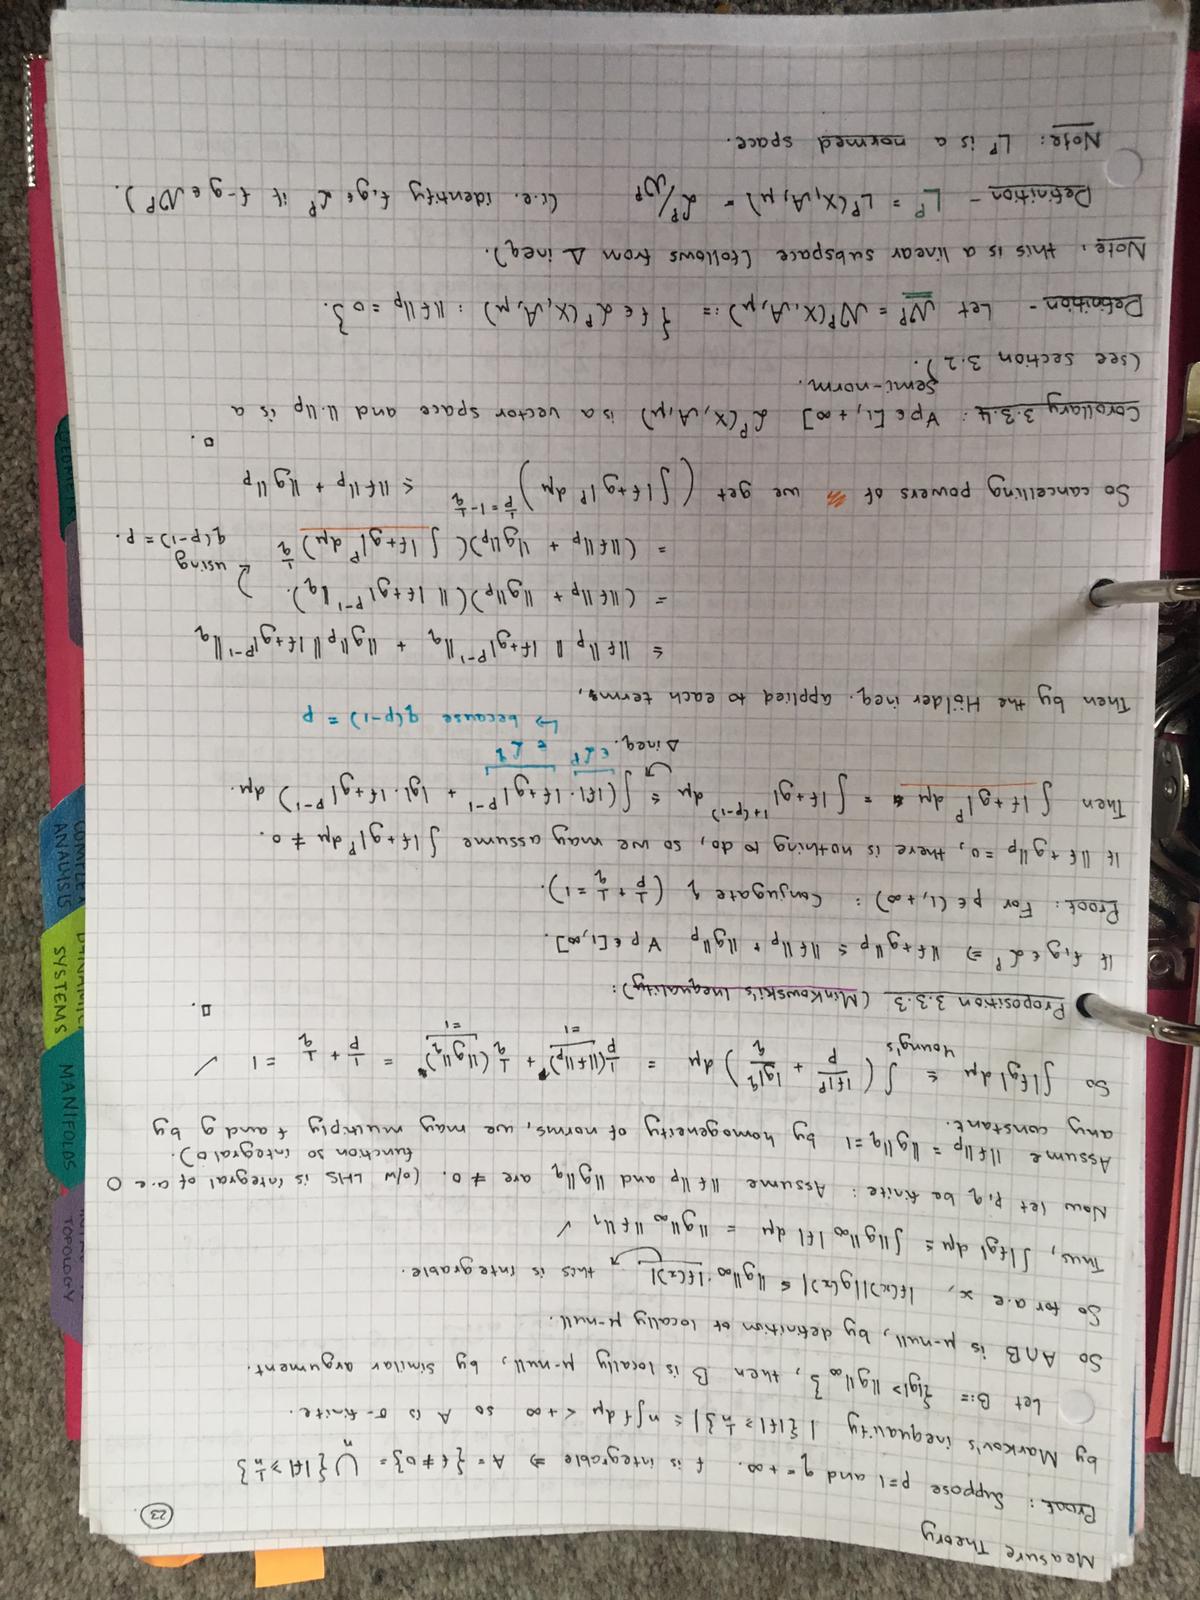 Measure Theory
23
Proof: Suppose p=1 and q=+∞. f is integrable ⇒ A = {f≠0} = ⋃ₙ {|f| > 1/n}
by Markov's inequality |{|f| ≥ 1/n}| ≤ n∫f dμ < +∞ so A is σ-finite.
Let B:= {|g| > ‖g‖∞}, then B is locally μ-null, by similar argument.
So A∩B is μ-null, by definition of locally μ-null.
So for a.e x, |f(x)||g(x)| ≤ ‖g‖∞·|f(x)| this is integrable.
Thus, ∫|fg| dμ ≤ ∫‖g‖∞ |f| dμ = ‖g‖∞ ‖f‖₁ ✓
Now let p,q be finite: Assume ‖f‖p and ‖g‖q are ≠ 0. (o/w LHS is integral of a.e 0
function so integral 0).
Assume ‖f‖p = ‖g‖q = 1 by homogeneity of norms, we may multiply f and g by
any constant.
So ∫|fg| dμ ≤ ∫(|f|^p/p + |g|^q/q) dμ = 1/p(‖f‖p)^p + 1/q(‖g‖q)^q = 1/p + 1/q = 1 ✓
Young's =1 =1
Proposition 3.3.3 (Minkowski's Inequality): □.
If f,g ∈ ℒ^p ⇒ ‖f+g‖p ≤ ‖f‖p + ‖g‖p ∀ p∈[1,∞].
Proof: For p∈(1,+∞): Conjugate q (1/p + 1/q = 1).
If ‖f+g‖p = 0, there is nothing to do, so we may assume ∫|f+g|^p dμ ≠ 0.
Then ∫|f+g|^p dμ = ∫|f+g|^{1+(p-1)} dμ ≤ ∫(|f|·|f+g|^{p-1} + |g|·|f+g|^{p-1}) dμ.
Δ ineq. ∈ℒ^p ∈ℒ^q
↳ because q(p-1) = p
Then by the Hölder ineq. applied to each term,
≤ ‖f‖p ‖|f+g|^{p-1}‖q + ‖g‖p ‖|f+g|^{p-1}‖q
= (‖f‖p + ‖g‖p)(‖|f+g|^{p-1}‖q).
= (‖f‖p + ‖g‖p)(∫|f+g|^p dμ)^{1/q} using q(p-1) = p.
So cancelling powers of we get (∫|f+g|^p dμ)^{1/p = 1-1/q} ≤ ‖f‖p + ‖g‖p
□.
Corollary 3.3.4: ∀p∈[1,+∞] ℒ^p(X,𝒜,μ) is a vector space and ‖·‖p is a
semi-norm.
(see section 3.2).
Definition - Let 𝒩^p = 𝒩^p(X,𝒜,μ) := {f∈ℒ^p(X,𝒜,μ) : ‖f‖p = 0}.
Note: this is a linear subspace (follows from Δ ineq).
Definition - L^p = L^p(X,𝒜,μ) = ℒ^p/𝒩^p (i.e. identify f,g∈ℒ^p if f-g∈𝒩^p).
Note: L^p is a normed space.
TOPOLOGY
MANIFOLDS
SYSTEMS
COMPLEX
ANALYSIS